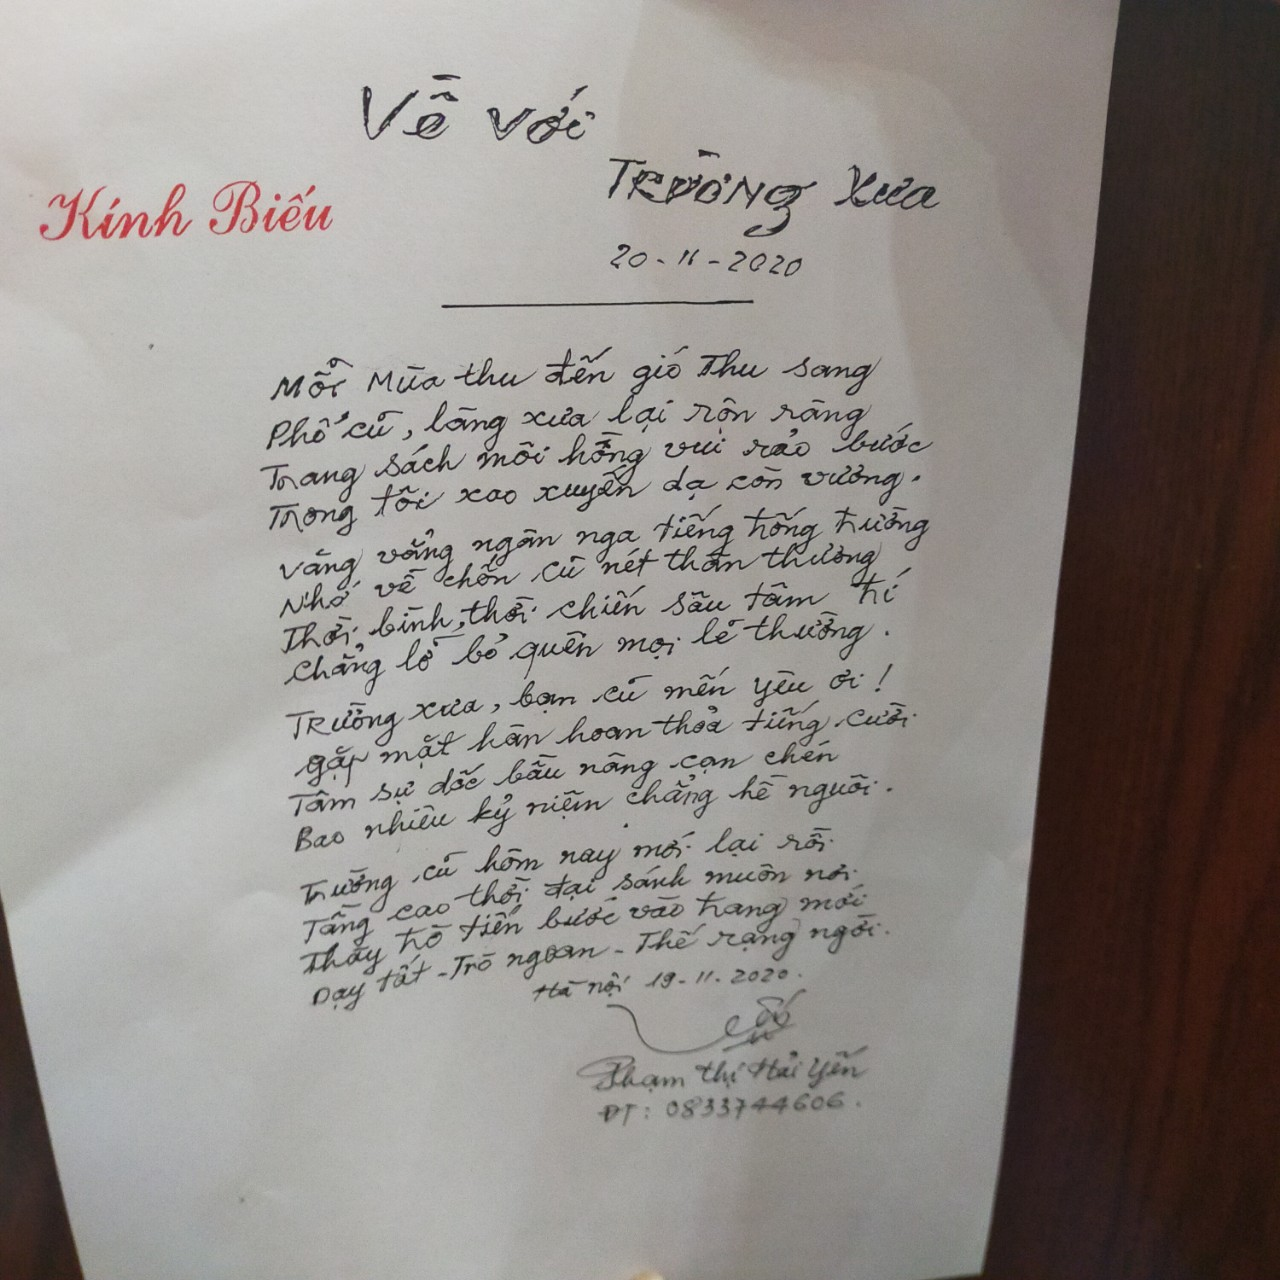 Về với
Trường Xưa
Kính Biếu
20-11-2020
Mỗi Mùa thu đến gió Thu sang
Phố cũ, làng xưa lại rộn ràng
Trang sách môi hồng vui rảo bước
Trong tôi xao xuyến dạ còn vương.
Văng vẳng ngân nga tiếng trống trường
Nhớ về chốn cũ nét thân thương
Thời bình, thời chiến sâu tâm trí
Chẳng lỡ bỏ quên mọi lẽ thường.
Trường xưa, bạn cũ mến yêu ơi!
Gặp mặt hân hoan thỏa tiếng cười
Tâm sự dốc bầu nâng cạn chén
Bao nhiêu kỷ niệm chẳng hề nguôi.
Trường cũ hôm nay mới lại rồi
Tầng cao thời đại sánh muôn nơi
Thầy trò tiến bước vào trang mới
Dạy tốt - Trò ngoan - Thế rạng ngời.
Hà nội 19-11-2020.
Phạm Thị Hải Yến
ĐT: 0833744606.